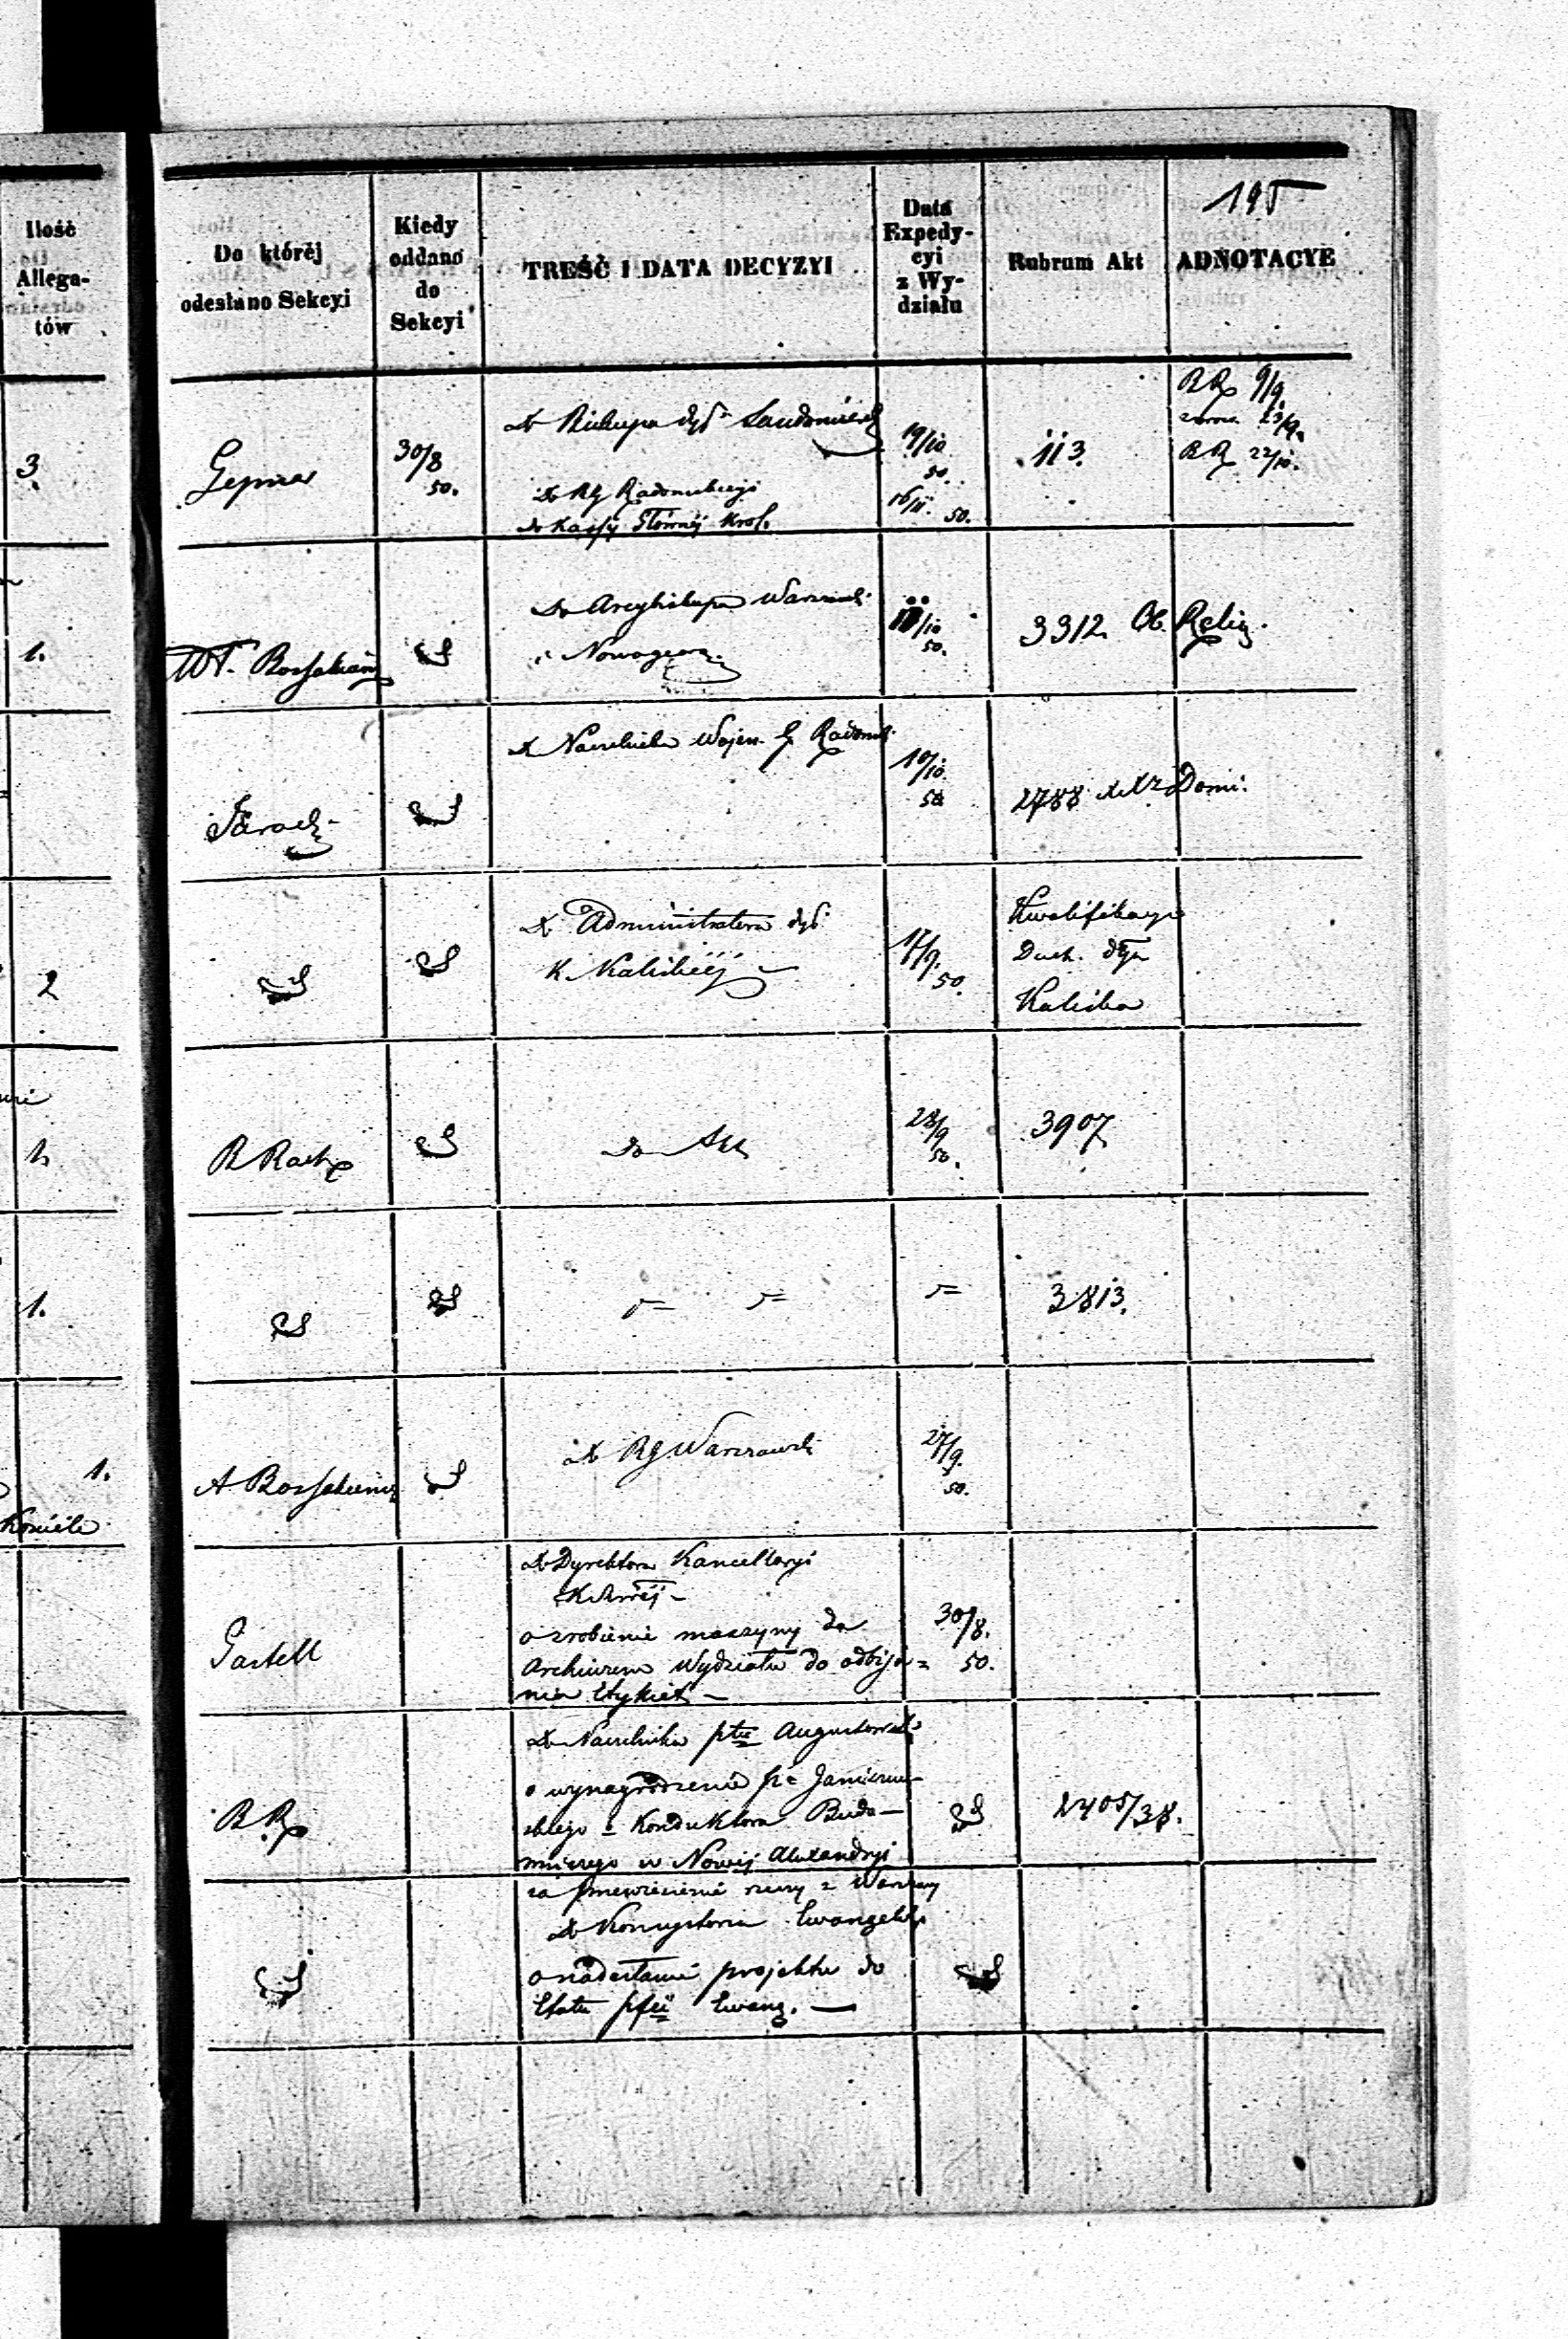 195
Ilość
Allega-
tów
Do któréj
odesłano Sekcyi
Kiedy
oddano
do
Sekcyi
TREŚĆ I DATA DECYZYI
Data
Expedy-
cyi
z Wy-
działu
Rubrum Akt
ADNOTACYE
3.
30/8
50.
Do Biskupa dyć. Sandomiersk
Do RG Radomskiego
do Kassy Głównej Król.
19/10
50.
16/11. 50.
113.
RR 9/9.
23/9.
RR 22/10.
1.
Do Arcybiskupa Warszaws.
Nowogeor.
11/10
50.
3312. Ob. Relig.
Do Naczelnika Wojen. G. Radoms.
10/10
50
2788 Domi.
2
Do Administratora dyć.
K. Kaliskiéj
17/9.
50.
Kwalifikacye
Duch. dyć
Kaliska
1.
R Rach
28/9
50.
3907
1.
3813.
1.
A Bossakiewicz
Do RG Warszawsk
27/9.
50.
Kościele
Gastell
Do Dyrektora Kancellaryi
o zrobienie maszyny do
Archiwum Wydziału do odbija=
nia Etykiet
30/8.
50.
RR
Do Naczelnika ptu Augustowsk
o wynagrodzenie
skiego = Konduktora Budo-
wniczego w Nowéj Alexandryi
2405/38.
za przewiezienie z Warszawy
Do Konsystorza Ewangelick
o nadesłanie projektu do
Etatu Ewang.